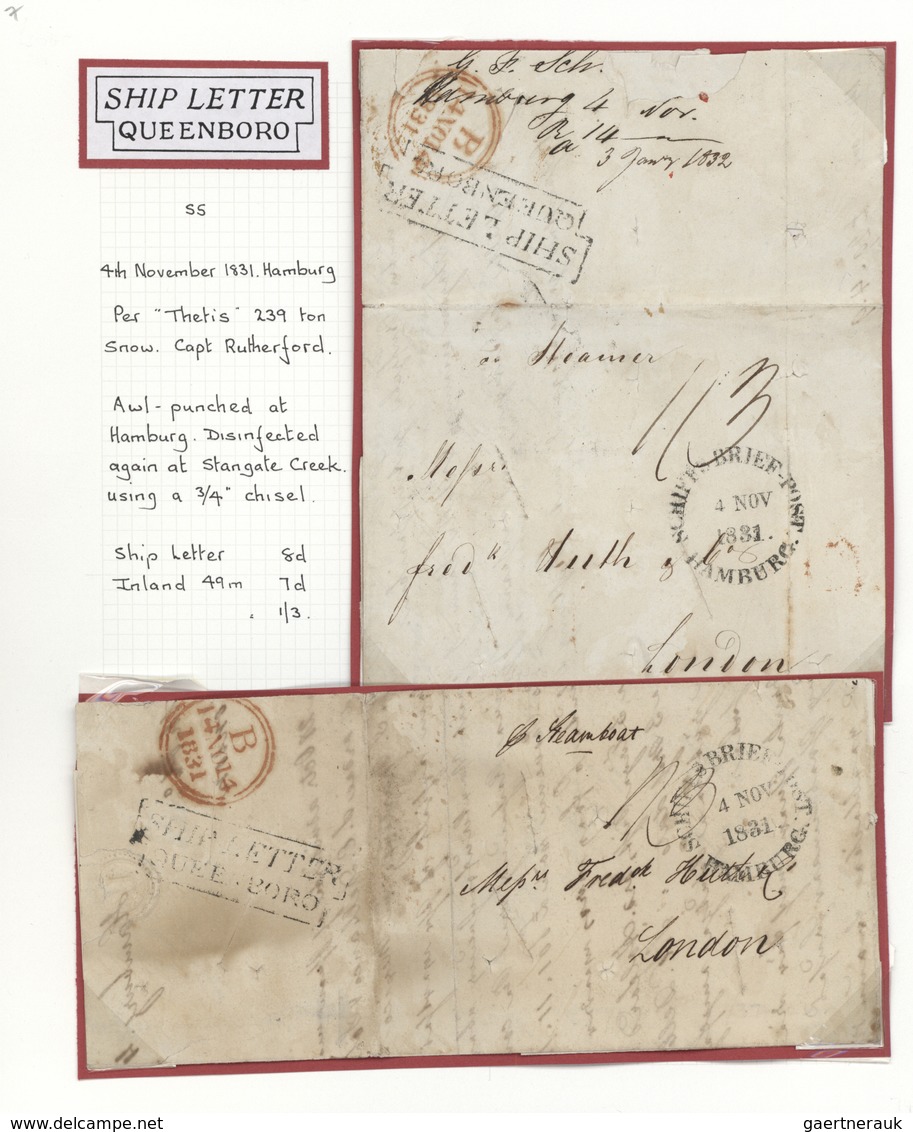 SHIP LETTER
QUEENBORO
SS
4th November 1831. Hamburg
Per "Thetis" 239 ton
Snow. Capt Rutherford.
Awl-punched at
Hamburg. Disinfected
again at Stangate Creek.
using a 3/4" chisel.
Ship Letter 8d
Inland 49m 7d
1/3.
G. F. Sch.
Hamburg 4 Nov.
Ra 14
3 Janry 1832
B
14 NO 14
1831
SHIP LETTER
QUEENBORO
Steamer
1/3
Messrs
Fredk Huth & Co
London
SCHIFFS BRIEF-POST
4 NOV
1831.
HAMBURG.
B
14 NO 14
1831
SHIP LETTER
QUEENBORO
p Steamboat
1/3
Messrs Fredck Huth &
London
SCHIFFS BRIEF-POST.
4 NOV
1831
HAMBURG.
gaertnerauk